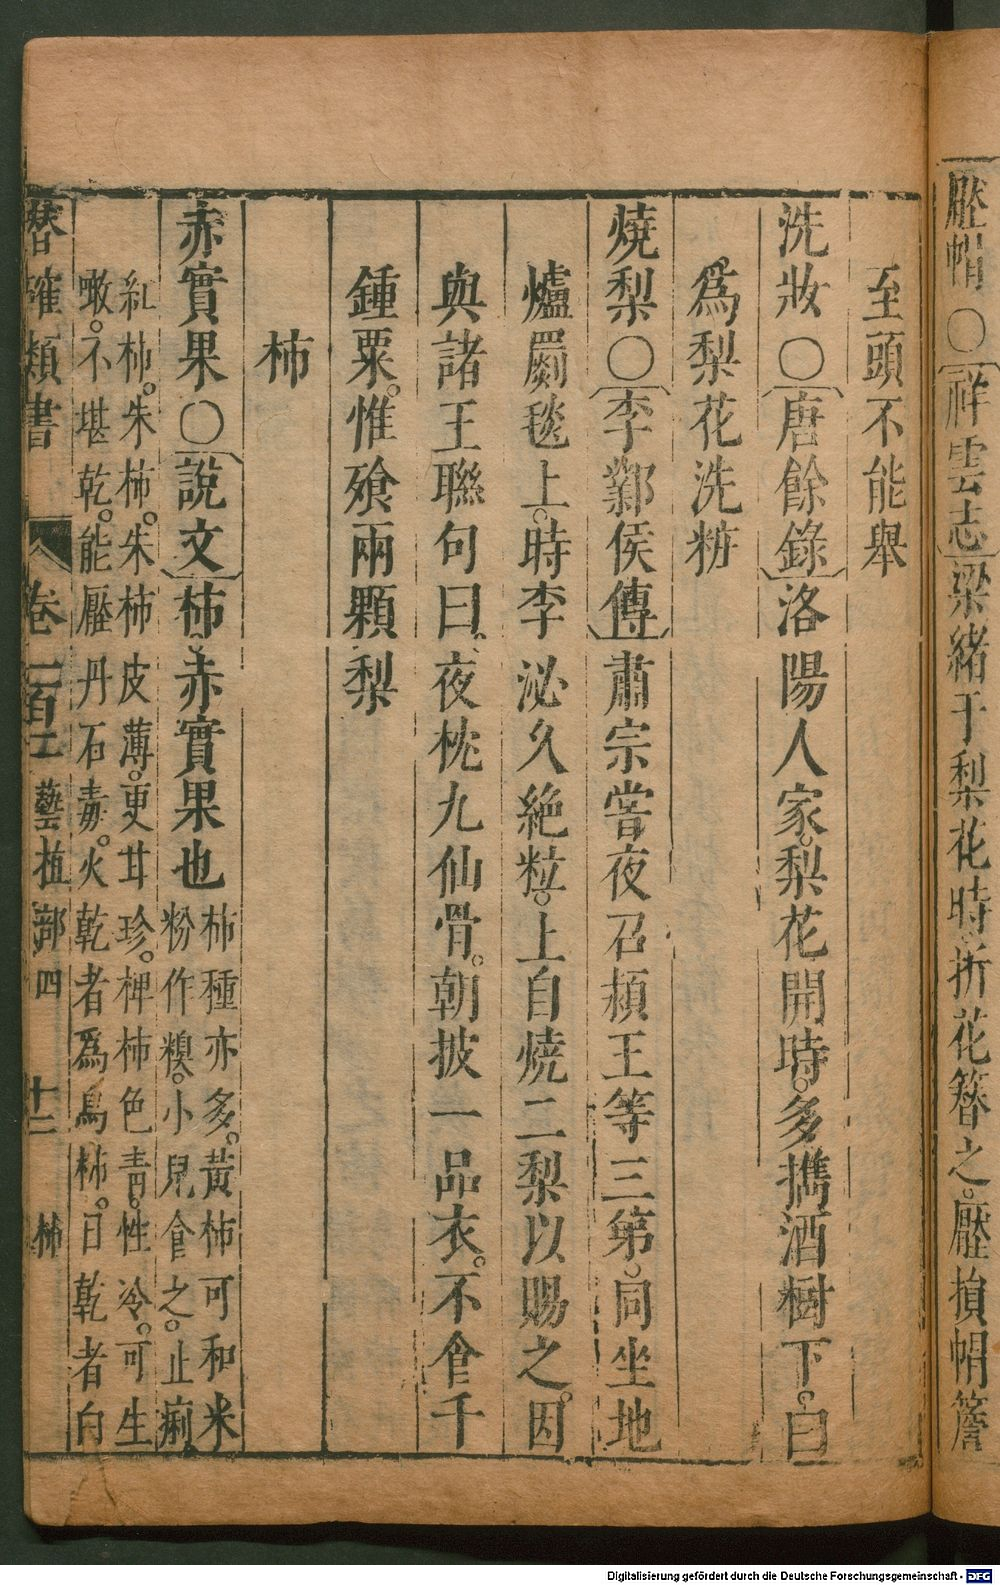 壓帽○祥雲志梁緒于梨花時折花簪之壓損帽簷
至頭不能舉
洗妝○唐餘錄洛陽人家梨花開時多攜酒樹下曰
爲梨花洗粧
燒梨○李鄴侯傳肅宗嘗夜召頴王等三第同坐地
爐罽毯上時李泌久絶粒上自燒二梨以賜之因
與諸王聯句曰夜枕九仙骨朝披一品衣不食千
鍾粟惟飱兩顆梨
柿
赤實果○說文柿赤實果也柿種亦多黃柿可和米
粉作糗小兒食之止痢
紅柿朱柿朱柿皮薄更甘珍椑柿色青性冷可生
噉不堪乾能壓丹石毒火乾者爲烏柿日乾者白
潛確類書 卷一百二 藝植部四 十三 柿
Digitalisierung gefördert durch die Deutsche Forschungsgemeinschaft - DFG